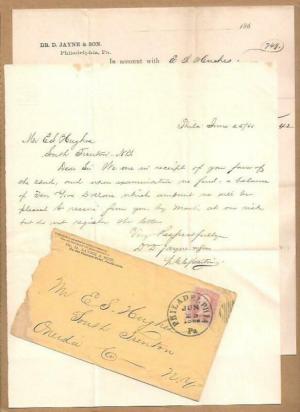 186
DR. D. JAYNE & SON.
Philadelphia, Pa.
In account with E. S. Hughes
Phila June 25/61
Mr Ed Hughes
South Trenton, N.Y.
Dear Sir We are in receipt of your favor of
the and upon examination we find a balance
of Ten Dollars which amount we will be
pleased to receive from you by mail, at our risk
but do not register the letter
Very Respectfully
D. Jayne & Son
Mr E. S. Hughes
South Trenton
Oneida Co
N.Y.
PHILADELPHIA
JUN
Pa